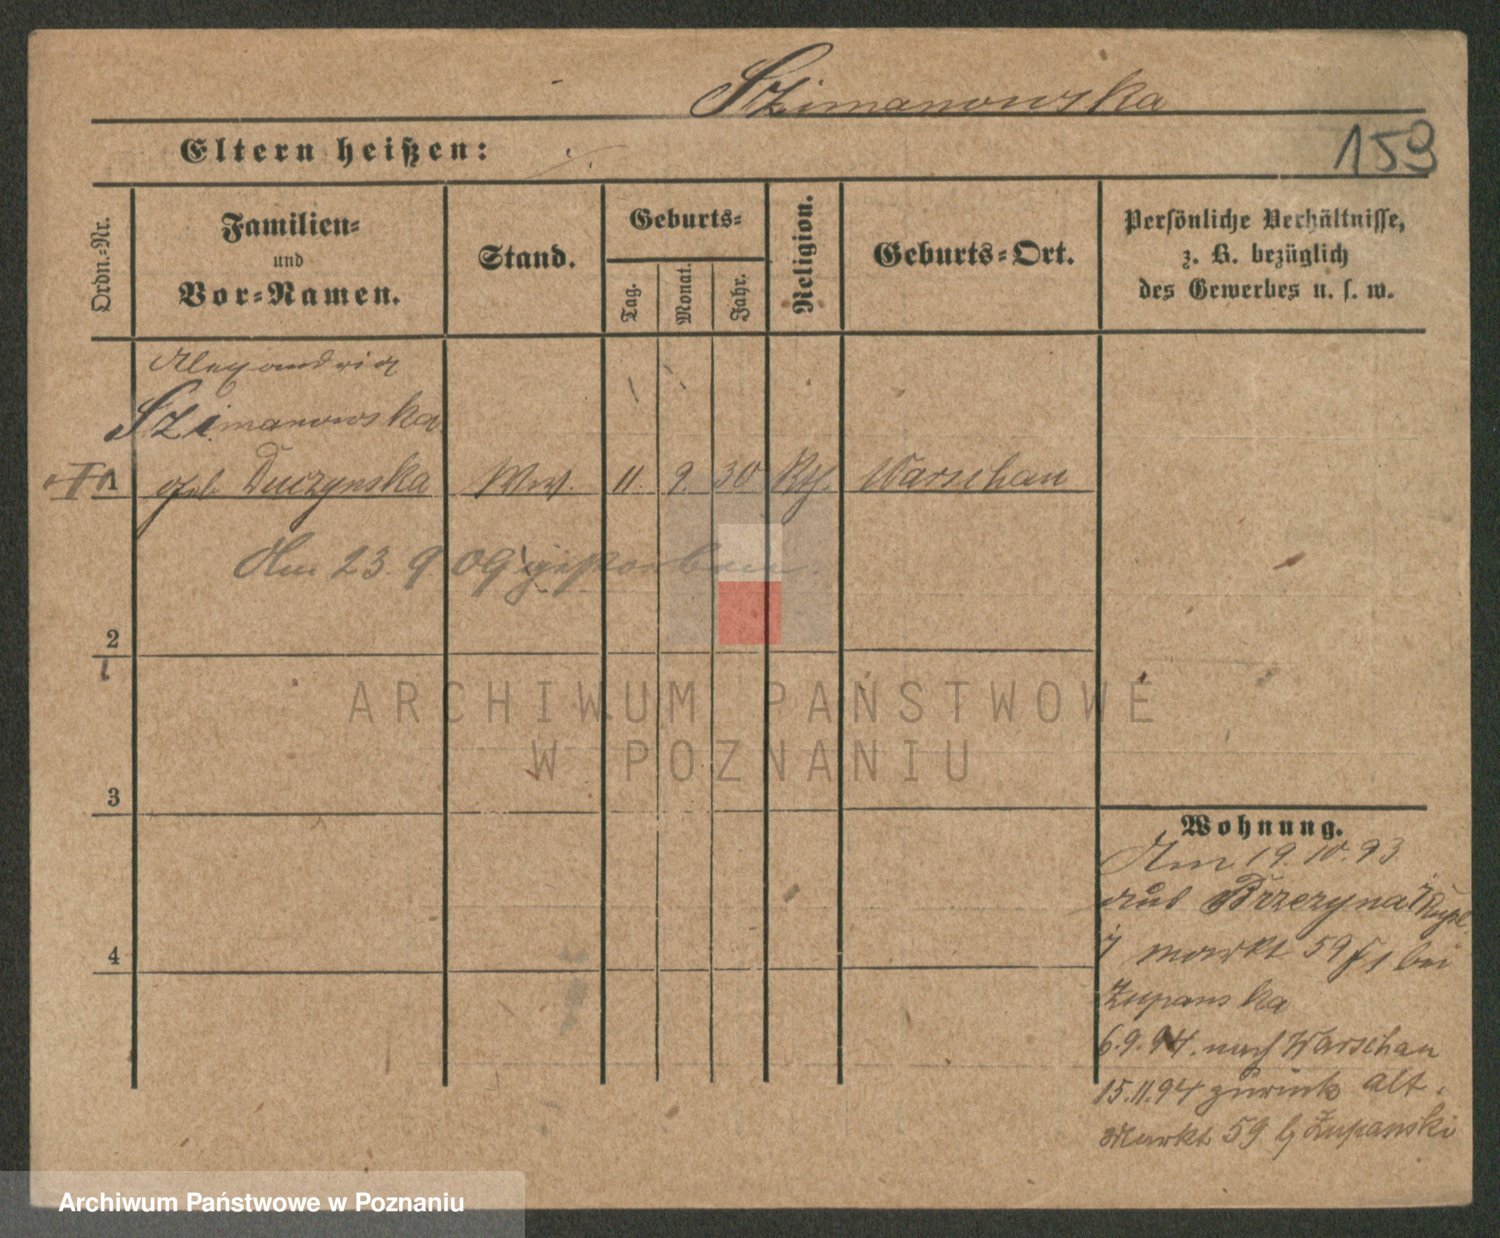 Szimanowska
Eltern heißen:
159
Ordn.-Nr.
Familien-
und
Vor-Namen.
Stand.
Geburts-
Tag.
Monat.
Jahr.
Religion.
Geburts-Ort.
Persönliche Verhältnisse,
z. B. bezüglich
des Gewerbes u. s. w.
Alexandria
Szimanowska
1 geb. Duczynska Ww. 11 9. 30 Kth. Warschau
Am 23. 9 09 gestorben.
2
3
4
Wohnung.
Am 19.10.93
aus Brzezyna
Markt 59 bei
Zupanska
6.9.94. nach Warschau
15.11.94 zurück Alt.
Markt 59 b/ Zupanski
ARCHIWUM PAŃSTWOWE
W POZNANIU
Archiwum Państwowe w Poznaniu